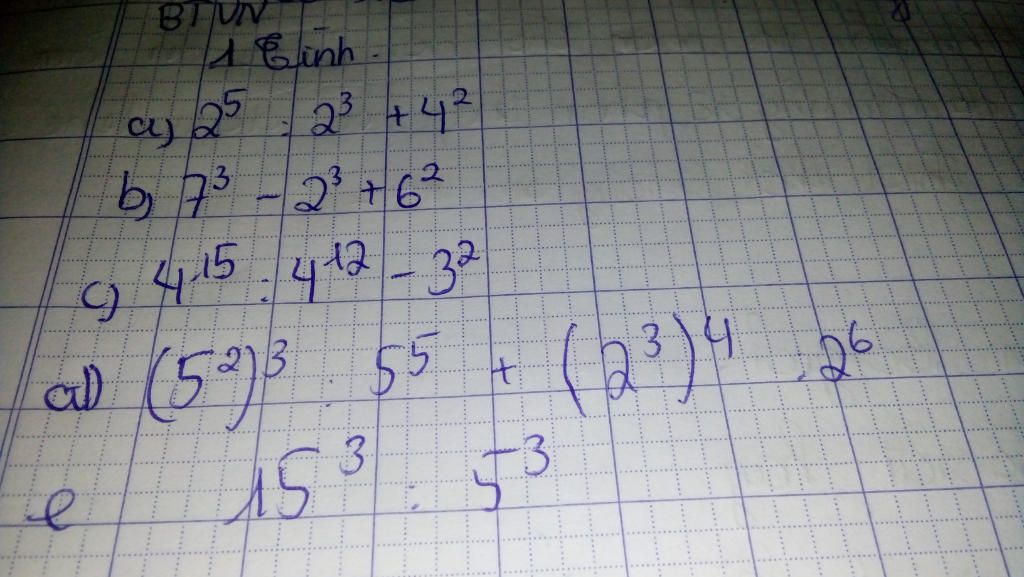 BTVN
1 Tính.
a) 2⁵ : 2³ + 4²
b) 7³ - 2³ + 6²
c) 4¹⁵ : 4¹² - 3²
d) (5²)³ : 5⁵ + (2³)⁴ : 2⁶
e 15³ : 5³